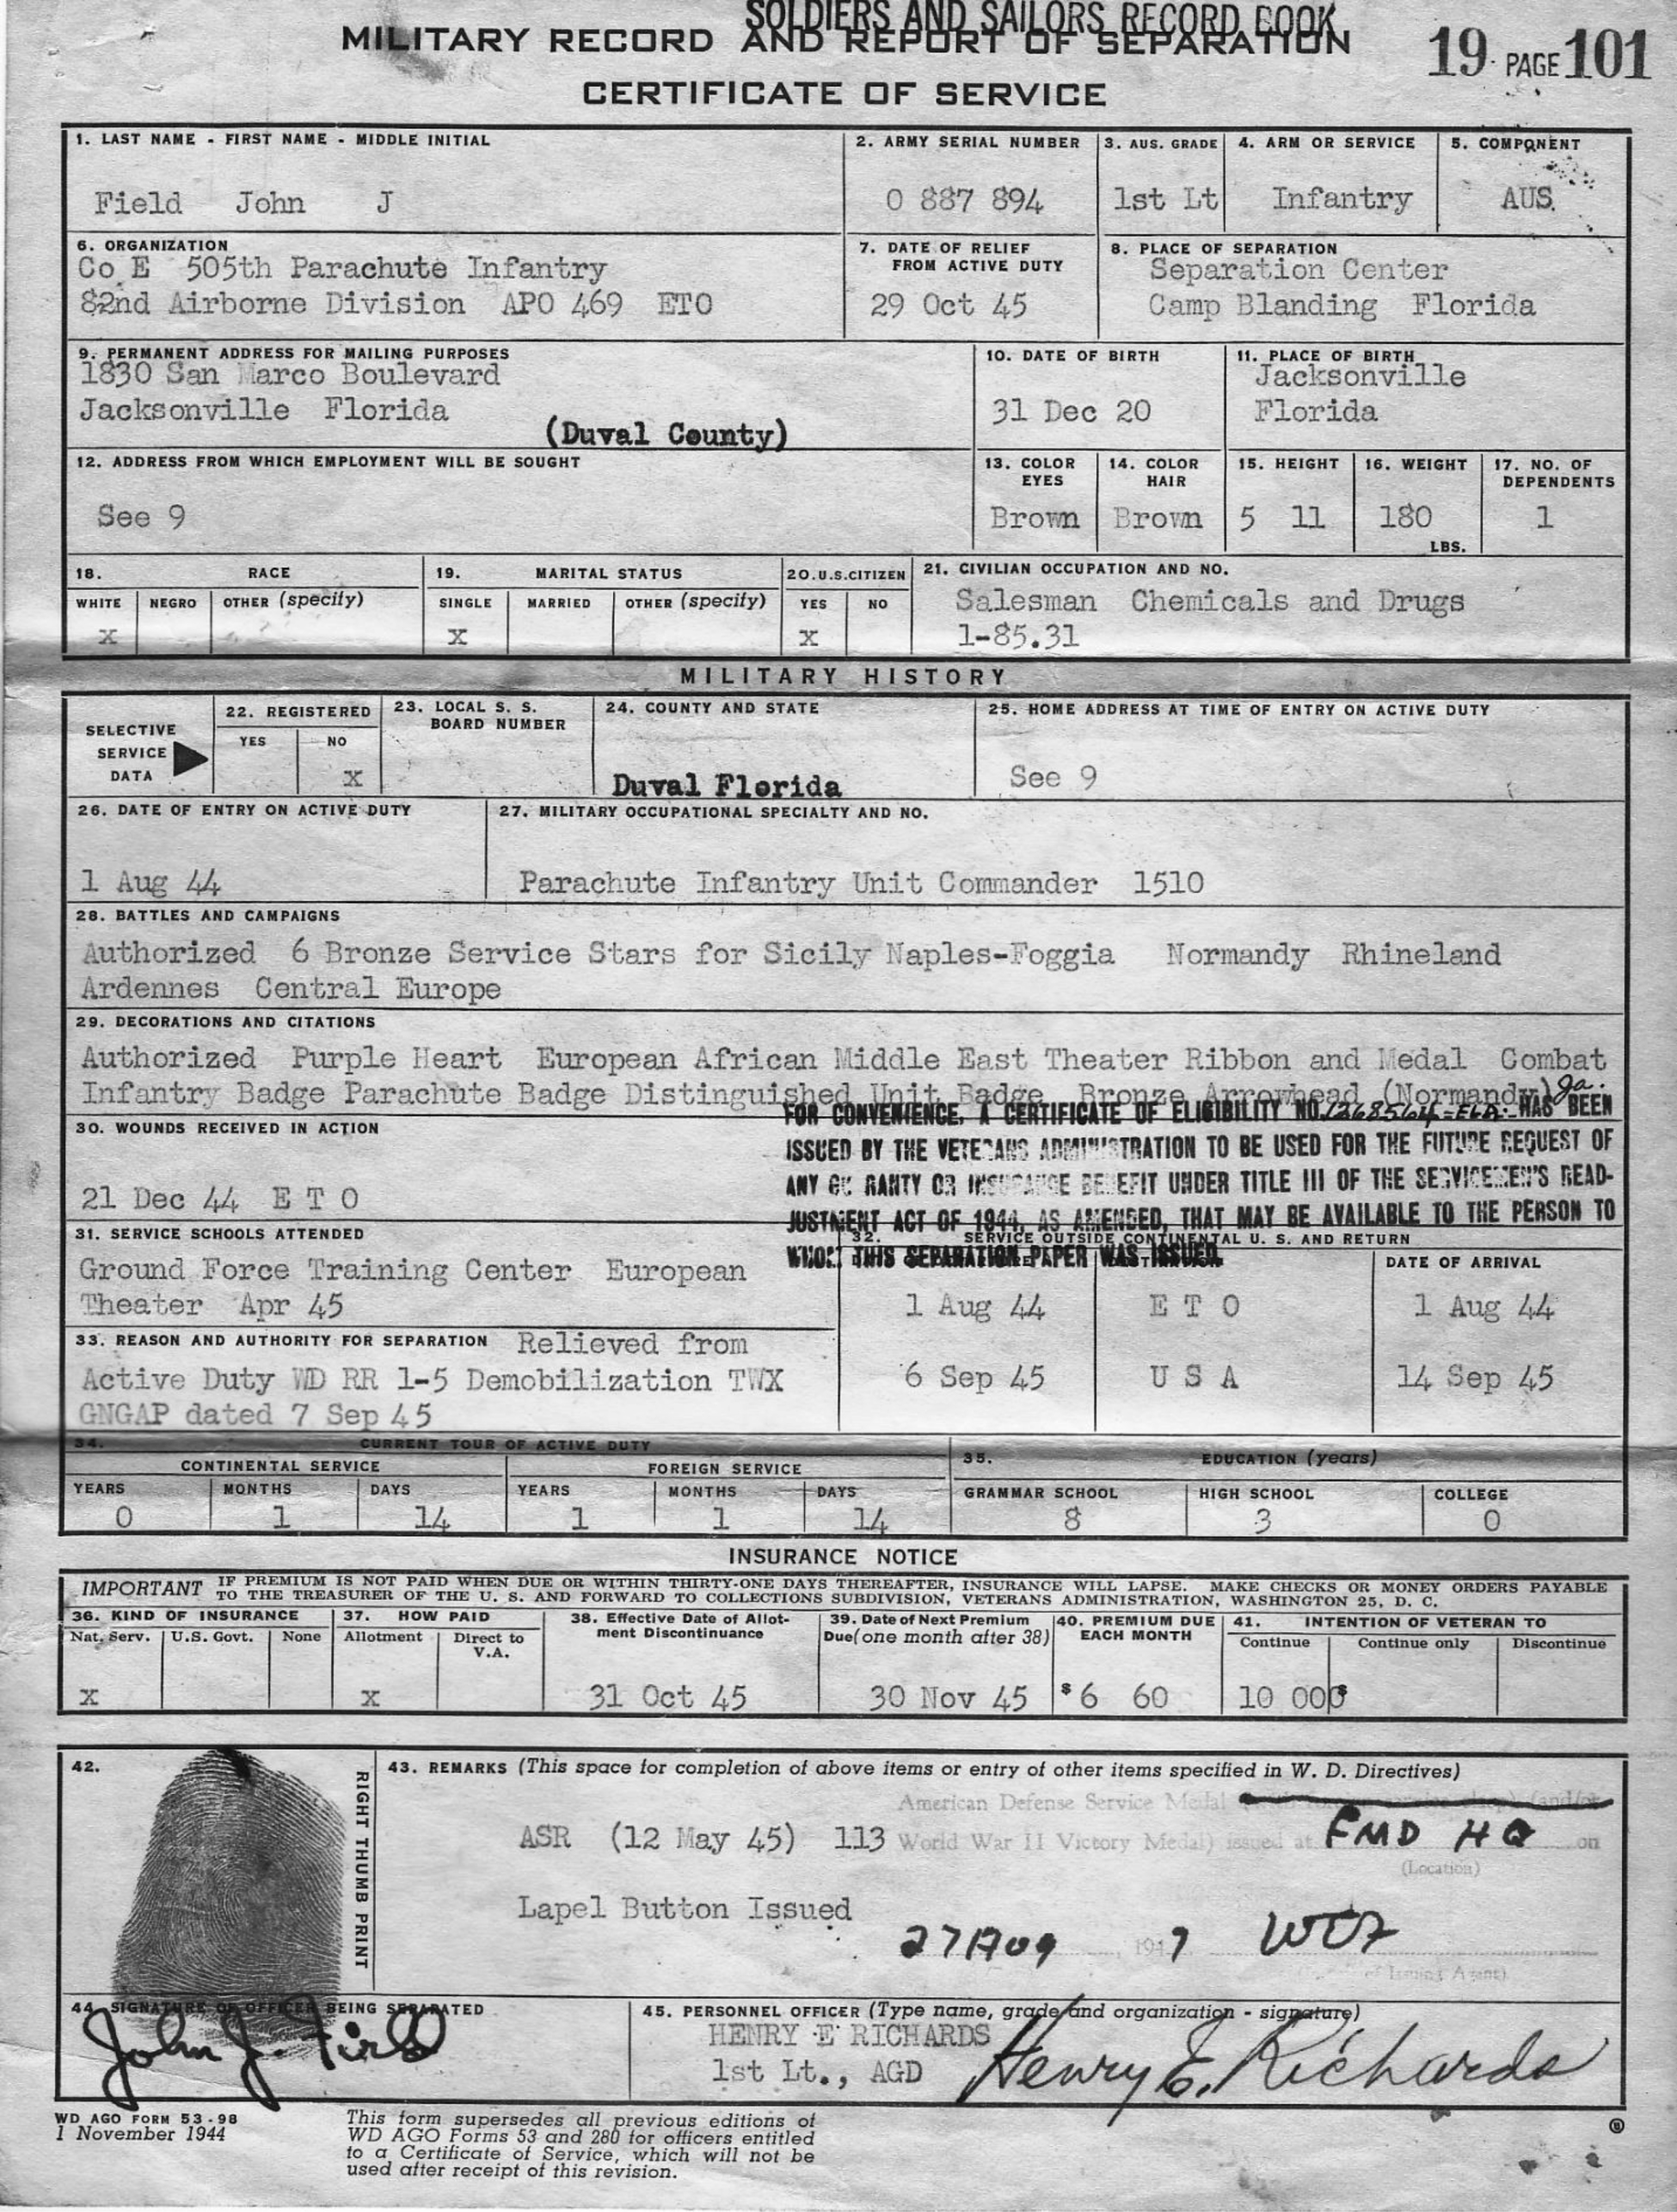 SOLDIERS AND SAILORS RECORD BOOK
MILITARY RECORD AND REPORT OF SEPARATION
19 PAGE 101
CERTIFICATE OF SERVICE
1. LAST NAME - FIRST NAME - MIDDLE INITIAL
Field John J
2. ARMY SERIAL NUMBER
0 887 894
3. AUS. GRADE
1st Lt
4. ARM OR SERVICE
Infantry
5. COMPONENT
AUS.
6. ORGANIZATION
Co E 505th Parachute Infantry
82nd Airborne Division APO 469 ETO
7. DATE OF RELIEF
FROM ACTIVE DUTY
29 Oct 45
8. PLACE OF SEPARATION
Separation Center
Camp Blanding Florida
9. PERMANENT ADDRESS FOR MAILING PURPOSES
1830 San Marco Boulevard
Jacksonville Florida
(Duval County)
10. DATE OF BIRTH
31 Dec 20
11. PLACE OF BIRTH
Jacksonville
Florida
12. ADDRESS FROM WHICH EMPLOYMENT WILL BE SOUGHT
See 9
13. COLOR
EYES
Brown
14. COLOR
HAIR
Brown
15. HEIGHT
5 11
16. WEIGHT
180
LBS.
17. NO. OF
DEPENDENTS
1
18. RACE
WHITE NEGRO OTHER (specify)
X
19. MARITAL STATUS
SINGLE MARRIED OTHER (specify)
X
20. U.S. CITIZEN
YES NO
X
21. CIVILIAN OCCUPATION AND NO.
Salesman Chemicals and Drugs
1-85.31
MILITARY HISTORY
SELECTIVE
SERVICE
DATA
22. REGISTERED
YES NO
X
23. LOCAL S. S.
BOARD NUMBER
24. COUNTY AND STATE
Duval Florida
25. HOME ADDRESS AT TIME OF ENTRY ON ACTIVE DUTY
See 9
26. DATE OF ENTRY ON ACTIVE DUTY
1 Aug 44
27. MILITARY OCCUPATIONAL SPECIALTY AND NO.
Parachute Infantry Unit Commander 1510
28. BATTLES AND CAMPAIGNS
Authorized 6 Bronze Service Stars for Sicily Naples-Foggia Normandy Rhineland
Ardennes Central Europe
29. DECORATIONS AND CITATIONS
Authorized Purple Heart European African Middle East Theater Ribbon and Medal Combat
Infantry Badge Parachute Badge Distinguished Unit Badge Bronze Arrowhead (Normandy)
FOR CONVENIENCE, A CERTIFICATE OF ELIGIBILITY NO. WAS BEEN
ISSUED BY THE VETERANS ADMINISTRATION TO BE USED FOR THE FUTURE REQUEST OF
ANY GUARANTY OR INSURANCE BENEFIT UNDER TITLE III OF THE SERVICEMEN'S READ-
JUSTMENT ACT OF 1944, AS AMENDED, THAT MAY BE AVAILABLE TO THE PERSON TO
WHOM THIS SEPARATION PAPER WAS ISSUED
30. WOUNDS RECEIVED IN ACTION
21 Dec 44 E T O
31. SERVICE SCHOOLS ATTENDED
Ground Force Training Center European
Theater Apr 45
32. SERVICE OUTSIDE CONTINENTAL U. S. AND RETURN
DATE OF ARRIVAL
1 Aug 44 E T O 1 Aug 44
6 Sep 45 U S A 14 Sep 45
33. REASON AND AUTHORITY FOR SEPARATION Relieved from
Active Duty WD RR 1-5 Demobilization TWX
GNGAP dated 7 Sep 45
34. CURRENT TOUR OF ACTIVE DUTY
CONTINENTAL SERVICE FOREIGN SERVICE
YEARS MONTHS DAYS YEARS MONTHS DAYS
0 1 14 1 1 14
35. EDUCATION (years)
GRAMMAR SCHOOL HIGH SCHOOL COLLEGE
8 3 0
INSURANCE NOTICE
IMPORTANT IF PREMIUM IS NOT PAID WHEN DUE OR WITHIN THIRTY-ONE DAYS THEREAFTER, INSURANCE WILL LAPSE. MAKE CHECKS OR MONEY ORDERS PAYABLE
TO THE TREASURER OF THE U. S. AND FORWARD TO COLLECTIONS SUBDIVISION, VETERANS ADMINISTRATION, WASHINGTON 25, D. C.
36. KIND OF INSURANCE
Nat. Serv. U.S. Govt. None
X
37. HOW PAID
Allotment Direct to
V.A.
X
38. Effective Date of Allot-
ment Discontinuance
31 Oct 45
39. Date of Next Premium
Due (one month after 38)
30 Nov 45
40. PREMIUM DUE
EACH MONTH
$6 60
41. INTENTION OF VETERAN TO
Continue Continue only Discontinue
10 000 $
42.
RIGHT THUMB PRINT
43. REMARKS (This space for completion of above items or entry of other items specified in W. D. Directives)
American Defense Service Medal (and/or
ASR (12 May 45) 113 World War II Victory Medal) issued at FMD HQ on
(Location)
Lapel Button Issued
27 Aug 1947
44. SIGNATURE OF OFFICER BEING SEPARATED
John J. Field
45. PERSONNEL OFFICER (Type name, grade and organization - signature)
HENRY E RICHARDS
1st Lt., AGD
Henry E. Richards
WD AGO FORM 53-98
1 November 1944
This form supersedes all previous editions of
WD AGO Forms 53 and 280 for officers entitled
to a Certificate of Service, which will not be
used after receipt of this revision.